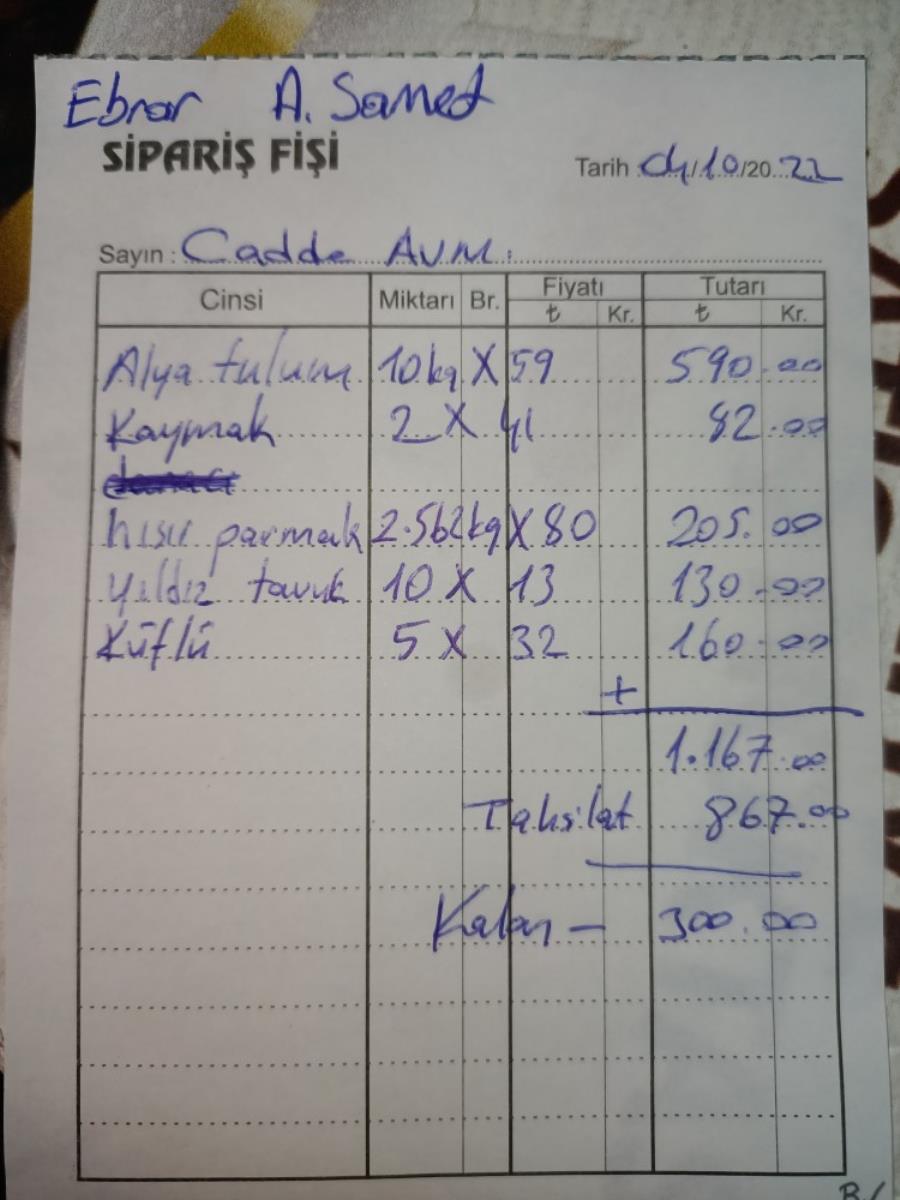 Ebrar A. Samed
SİPARİŞ FİŞİ
Tarih : 04/10/2022
Sayın : Cadde AVM.
Cinsi Miktarı Br. Fiyatı Tutarı
₺ Kr. ₺ Kr.
Alya tulum 10kg X 59 590.00
Kaymak 2 X 41 82.00
hısır parmak 2.562kg X 80 205.00
yıldız tavuk 10 X 13 130.00
Küflü 5 X 32 160.00
+
1.167.00
Tahsilat 867.00
Kalan - 300.00